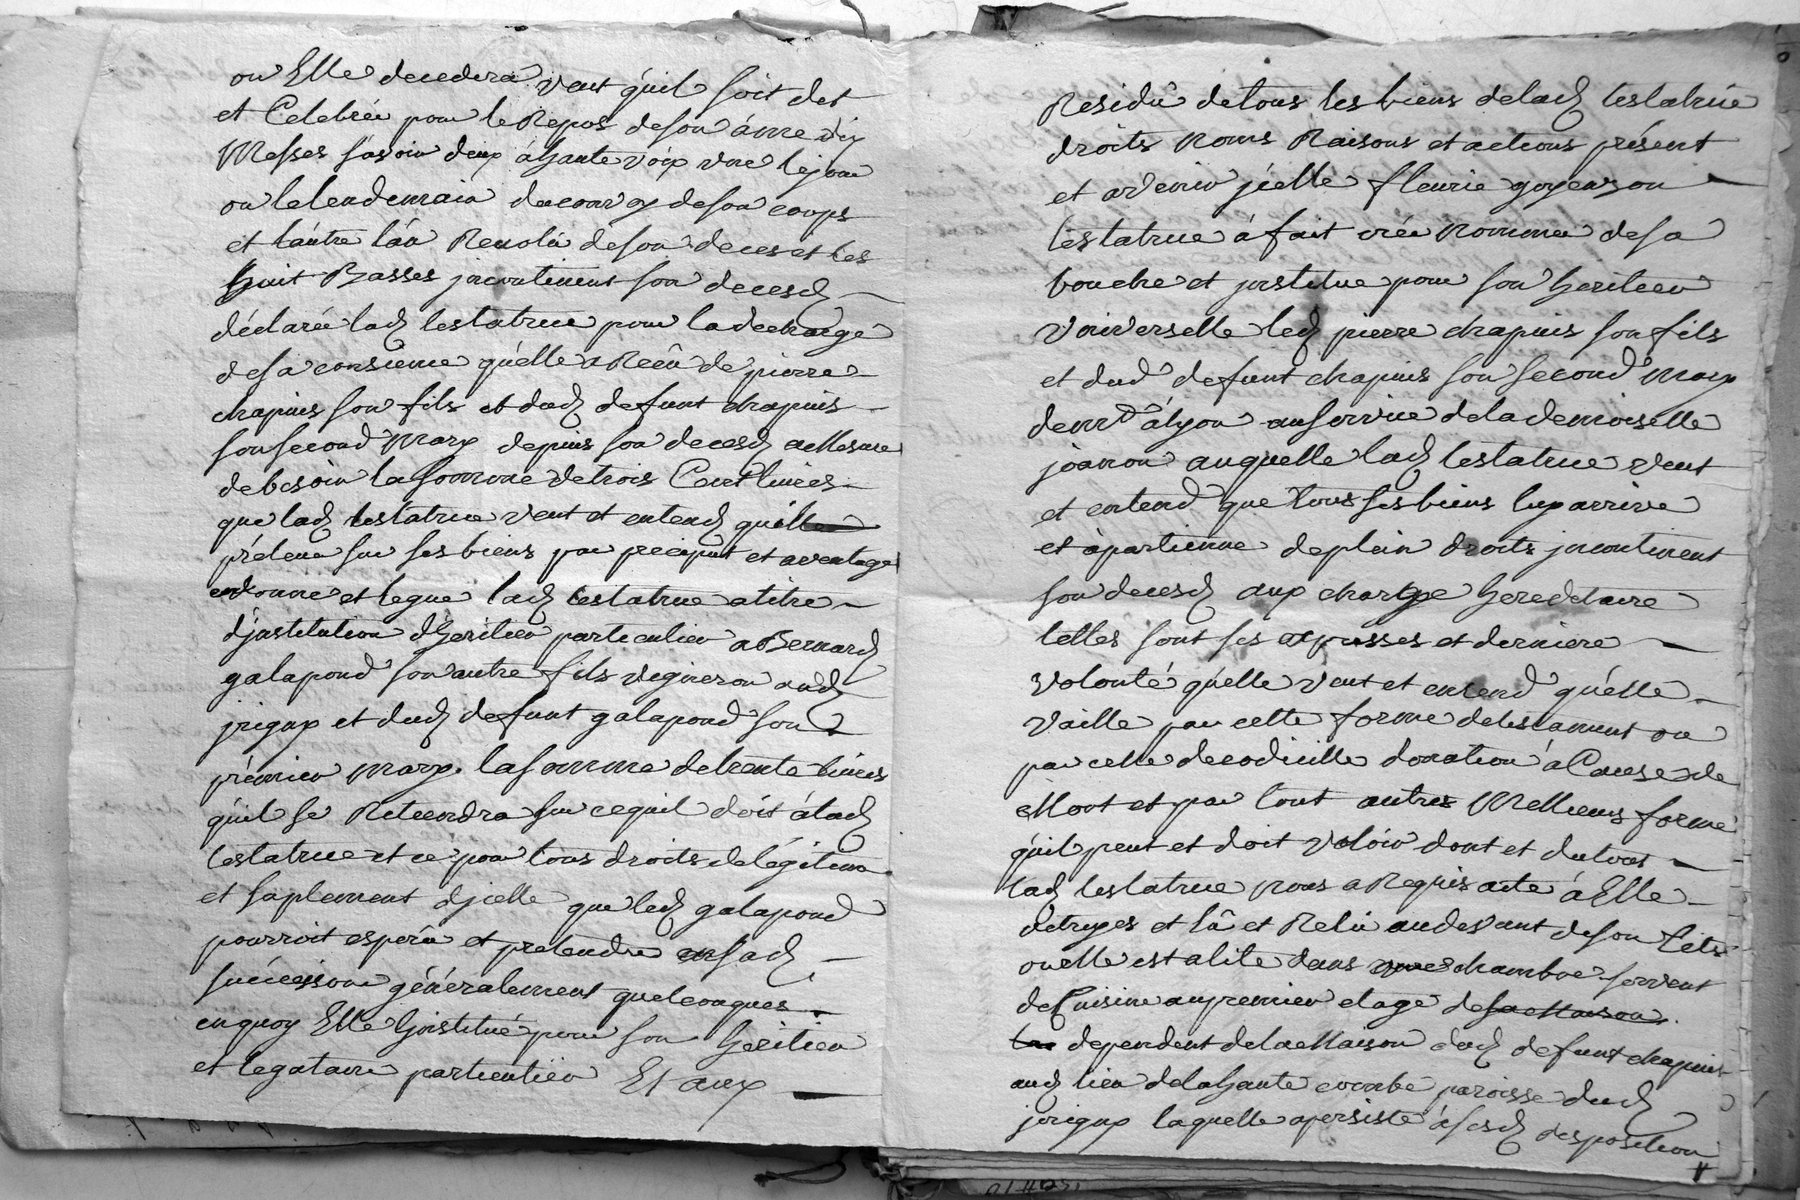 ou Elle decedera veut qu'il soit det
et Celebrée pour le Repos de son ame dix
Messes savoir deux a haute voix une le jour
ou le lendemain du convoy de son corps
et lautre lan Revolu de son deces et les
huit Basses jncontinent son decesd
déclarée lad testatrice pour la decharge
de sa consience qu'elle a Recû de pierre
chapuis son fils et dud defunt chapuis
son second Mary depuis son decesd a Mesure
de besoin la somme de trois Cent livres
que lad testatrice veut et entend quil
préleve sur ses biens par precîput et aventage
donne et legue lad testatrice a titre
d'jnstitution d'heritier particulier a Bernard
galapond son autre fils vigneron aud
jrigny et dud defunt galapond son
prémier mary. la somme de trente livres
qu'il se Retiendra sur cequil doit à lad
testatrice et ce pour tous droits de légitime
et suplement d'jcelle que led galapond
pourroit espérer et pretendre en sad
succession généralement quelconques
en quoy Elle l'jnstitué pour son heritier
et legataire particulier Et aux
Residû de tous les biens de lad testatrice
droits Noms Raisons et actions présent
et avenir jcelle fleurie goyenson
testatrice à fait créé Nommée de sa
bouche et jnstitue pour son heritier
Universelle led pierre chapuis son fils
et dud defunt chapuis son second mary
demt à lyon au service de la demoiselle
joanon auquelle lad testatrice veut
et entend que tous ses biens luy arrive
et àpartienne de plein droits jncontinent
son decesd aux charge heredetaire
telles sont ses expresses et derniere
volonté qu'elle veut et entend qu'elle
vaille par cette forme de testament ou
par celle de codicille donation à Cause de
Mort et par tout autres Mellieurs forme
qu'il peut et doit valoir dont et du tous
lad testatrice nous a Requis acte à Elle
detroyes et lû et Relû au devant de son lit
ou elle est alité dans chambre servent
de Cuisine au premier etage de sa Maison
dependent de la Maison dud defunt chapuis
aud lieu de la haute combe paroisse dud
jrigny laquelle a persisté à sesd desposition